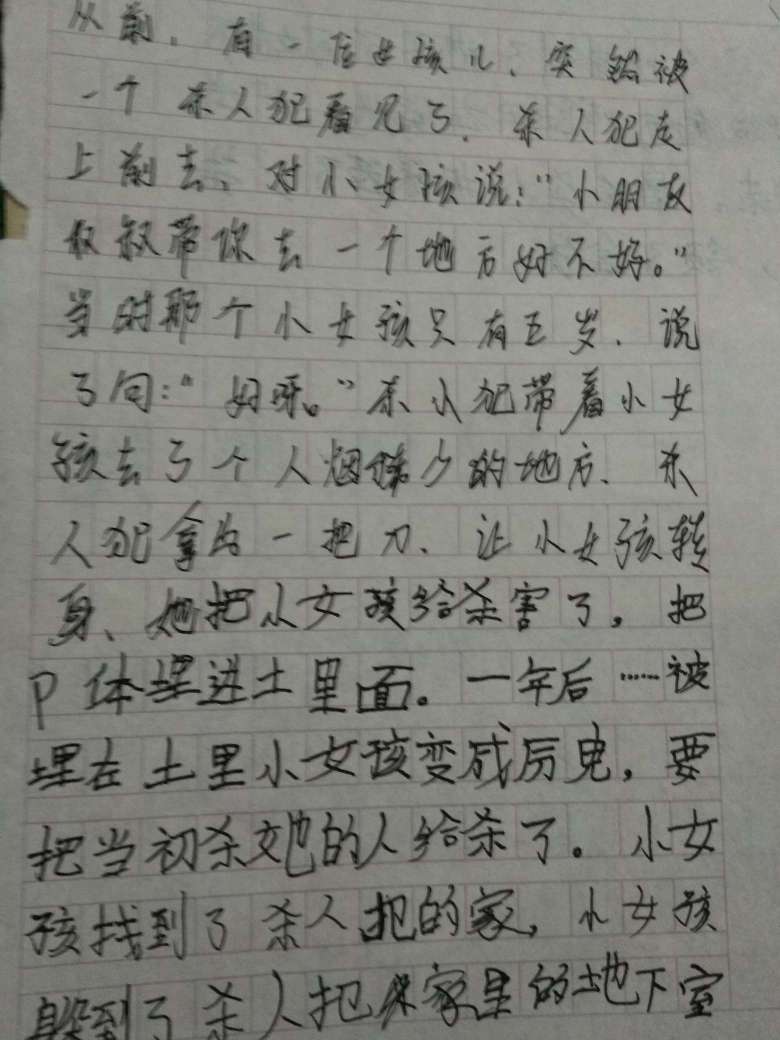 从前，有一位女孩儿、突然被
一个杀人犯看见了．杀人犯走
上前去、对小女孩说：“小朋友
叔叔带你去一个地方好不好。”
当时那个小女孩只有五岁．说
了句：“好呀。”杀人犯带着小女
孩去了个人烟稀少的地方．杀
人犯拿出一把刀．让小女孩转
身、她把小女孩给杀害了，把
尸体埋进土里面。一年后……被
埋在土里小女孩变成历鬼，要
把当初杀她的人给杀了。小女
孩找到了杀人犯的家，小女孩
躲到了杀人犯家里的地下室